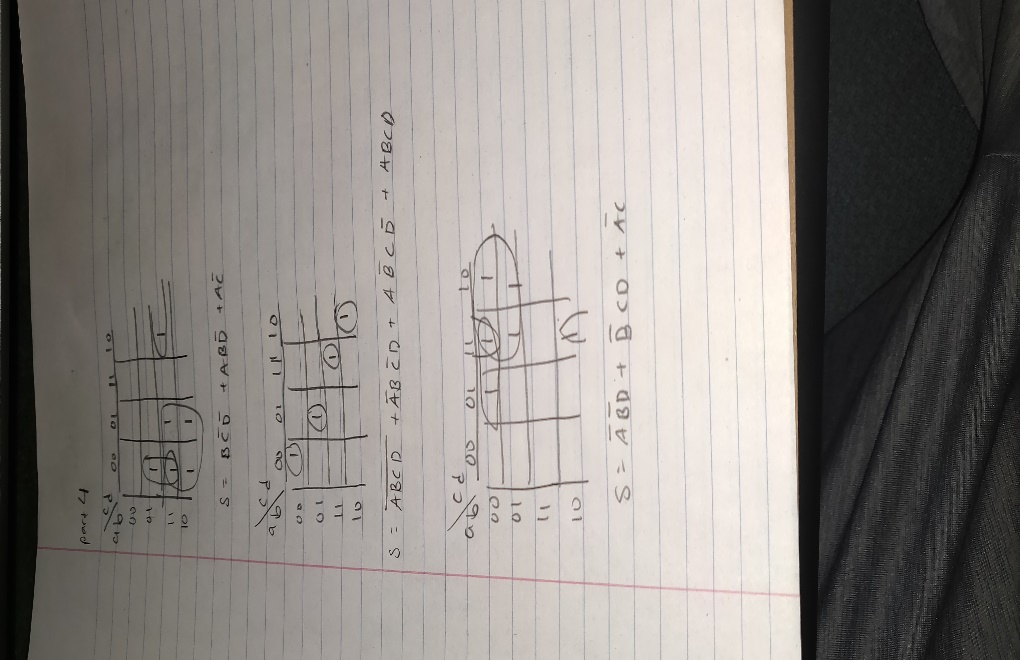 part 4
ab\cd 00 01 11 10
00
01 1
11 1 1 1
10 1 1
S = BC̄D̄ + ABD̄ + AC̄
ab\cd 00 01 11 10
00 1
01 1
11 1
10 1
S = A̅B̅C̅D̅ + ĀBC̄D + AB̄CD̄ + ABCD
ab\cd 00 01 11 10
00 1 1 1
01 1 1
11
10 1
S = ĀBD + B̄CD + ĀC